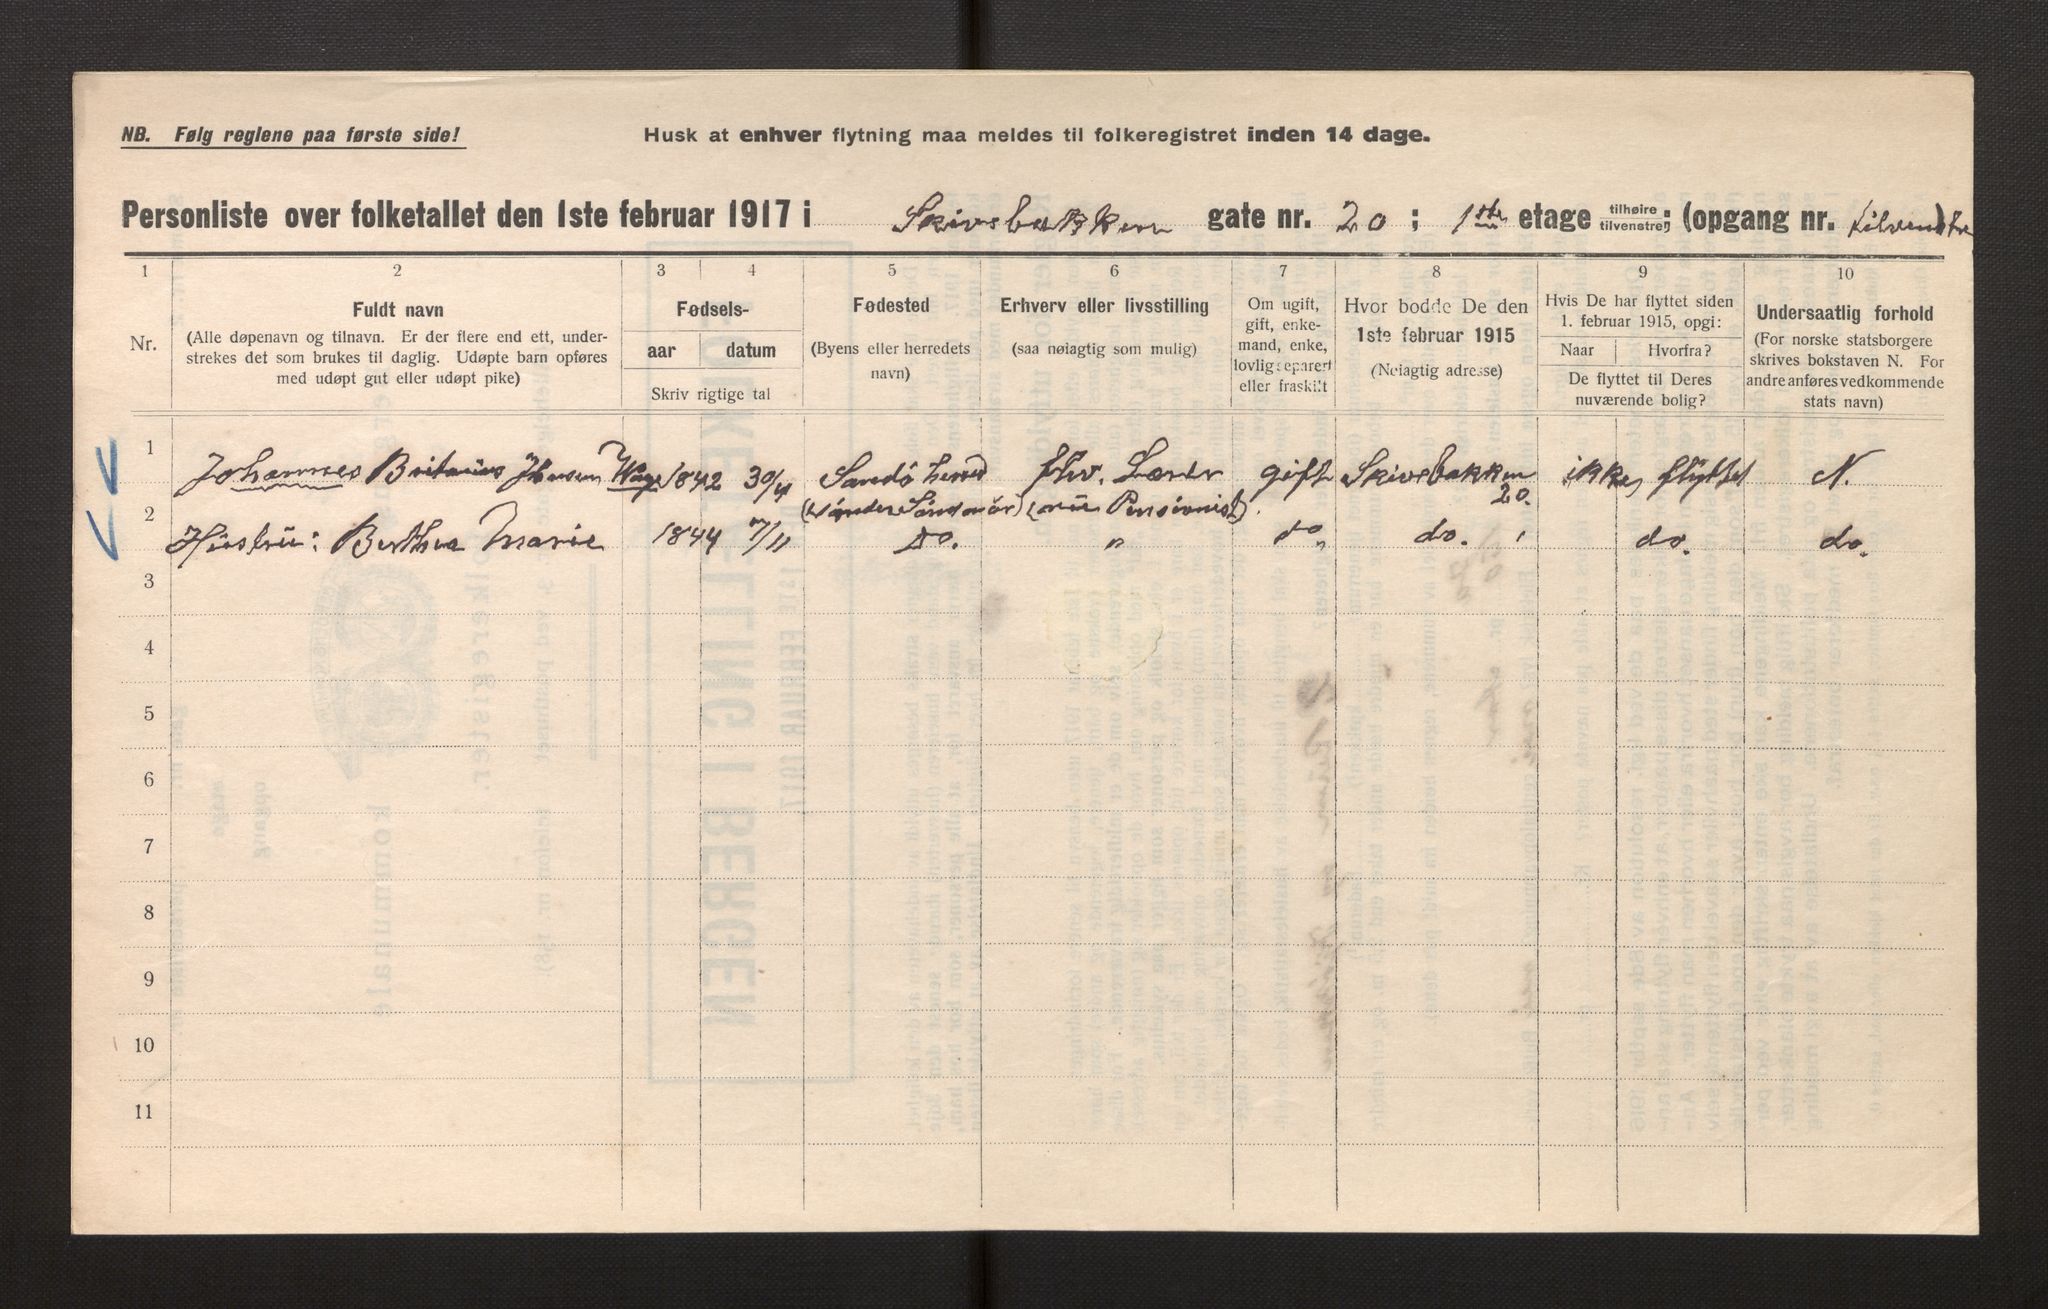 NB. Følg reglene paa første side!
Husk at enhver flytning maa meldes til folkeregistret inden 14 dage.
Personliste over folketallet den 1ste februar 1917 i Skivebakken gate nr. 20; 1ste etage tilhøire tilvenstre; (opgang nr. tilvenstre)
1 2 3 4 5 6 7 8 9 10
Nr.
Fuldt navn
(Alle døpenavn og tilnavn. Er der flere end ett, under-
strekes det som brukes til daglig. Udøpte barn opføres
med udøpt gut eller udøpt pike)
Fødsels-
aar datum
Skriv rigtige tal
Fødested
(Byens eller herredets
navn)
Erhverv eller livsstilling
(saa nøiagtig som mulig)
Om ugift,
gift, enke-
mand, enke,
lovlig separert
eller fraskilt
Hvor bodde De den
1ste februar 1915
(Nøiagtig adresse)
Hvis De har flyttet siden
1. februar 1915, opgi:
Naar Hvorfra?
De flyttet til Deres
nuværende bolig?
Undersaatlig forhold
(For norske statsborgere
skrives bokstaven N. For
andre anføres vedkommende
stats navn)
1 Johannes 1842 30/4 Sandö herred fhv. Lærer gift Skivebakken 20. ikke flyttet N.
(nu Pensionist)
2 Hustru: Berthea Marie 1844 7/11 Do. " do " do. do. do.
3
4
5
6
7
8
9
10
11